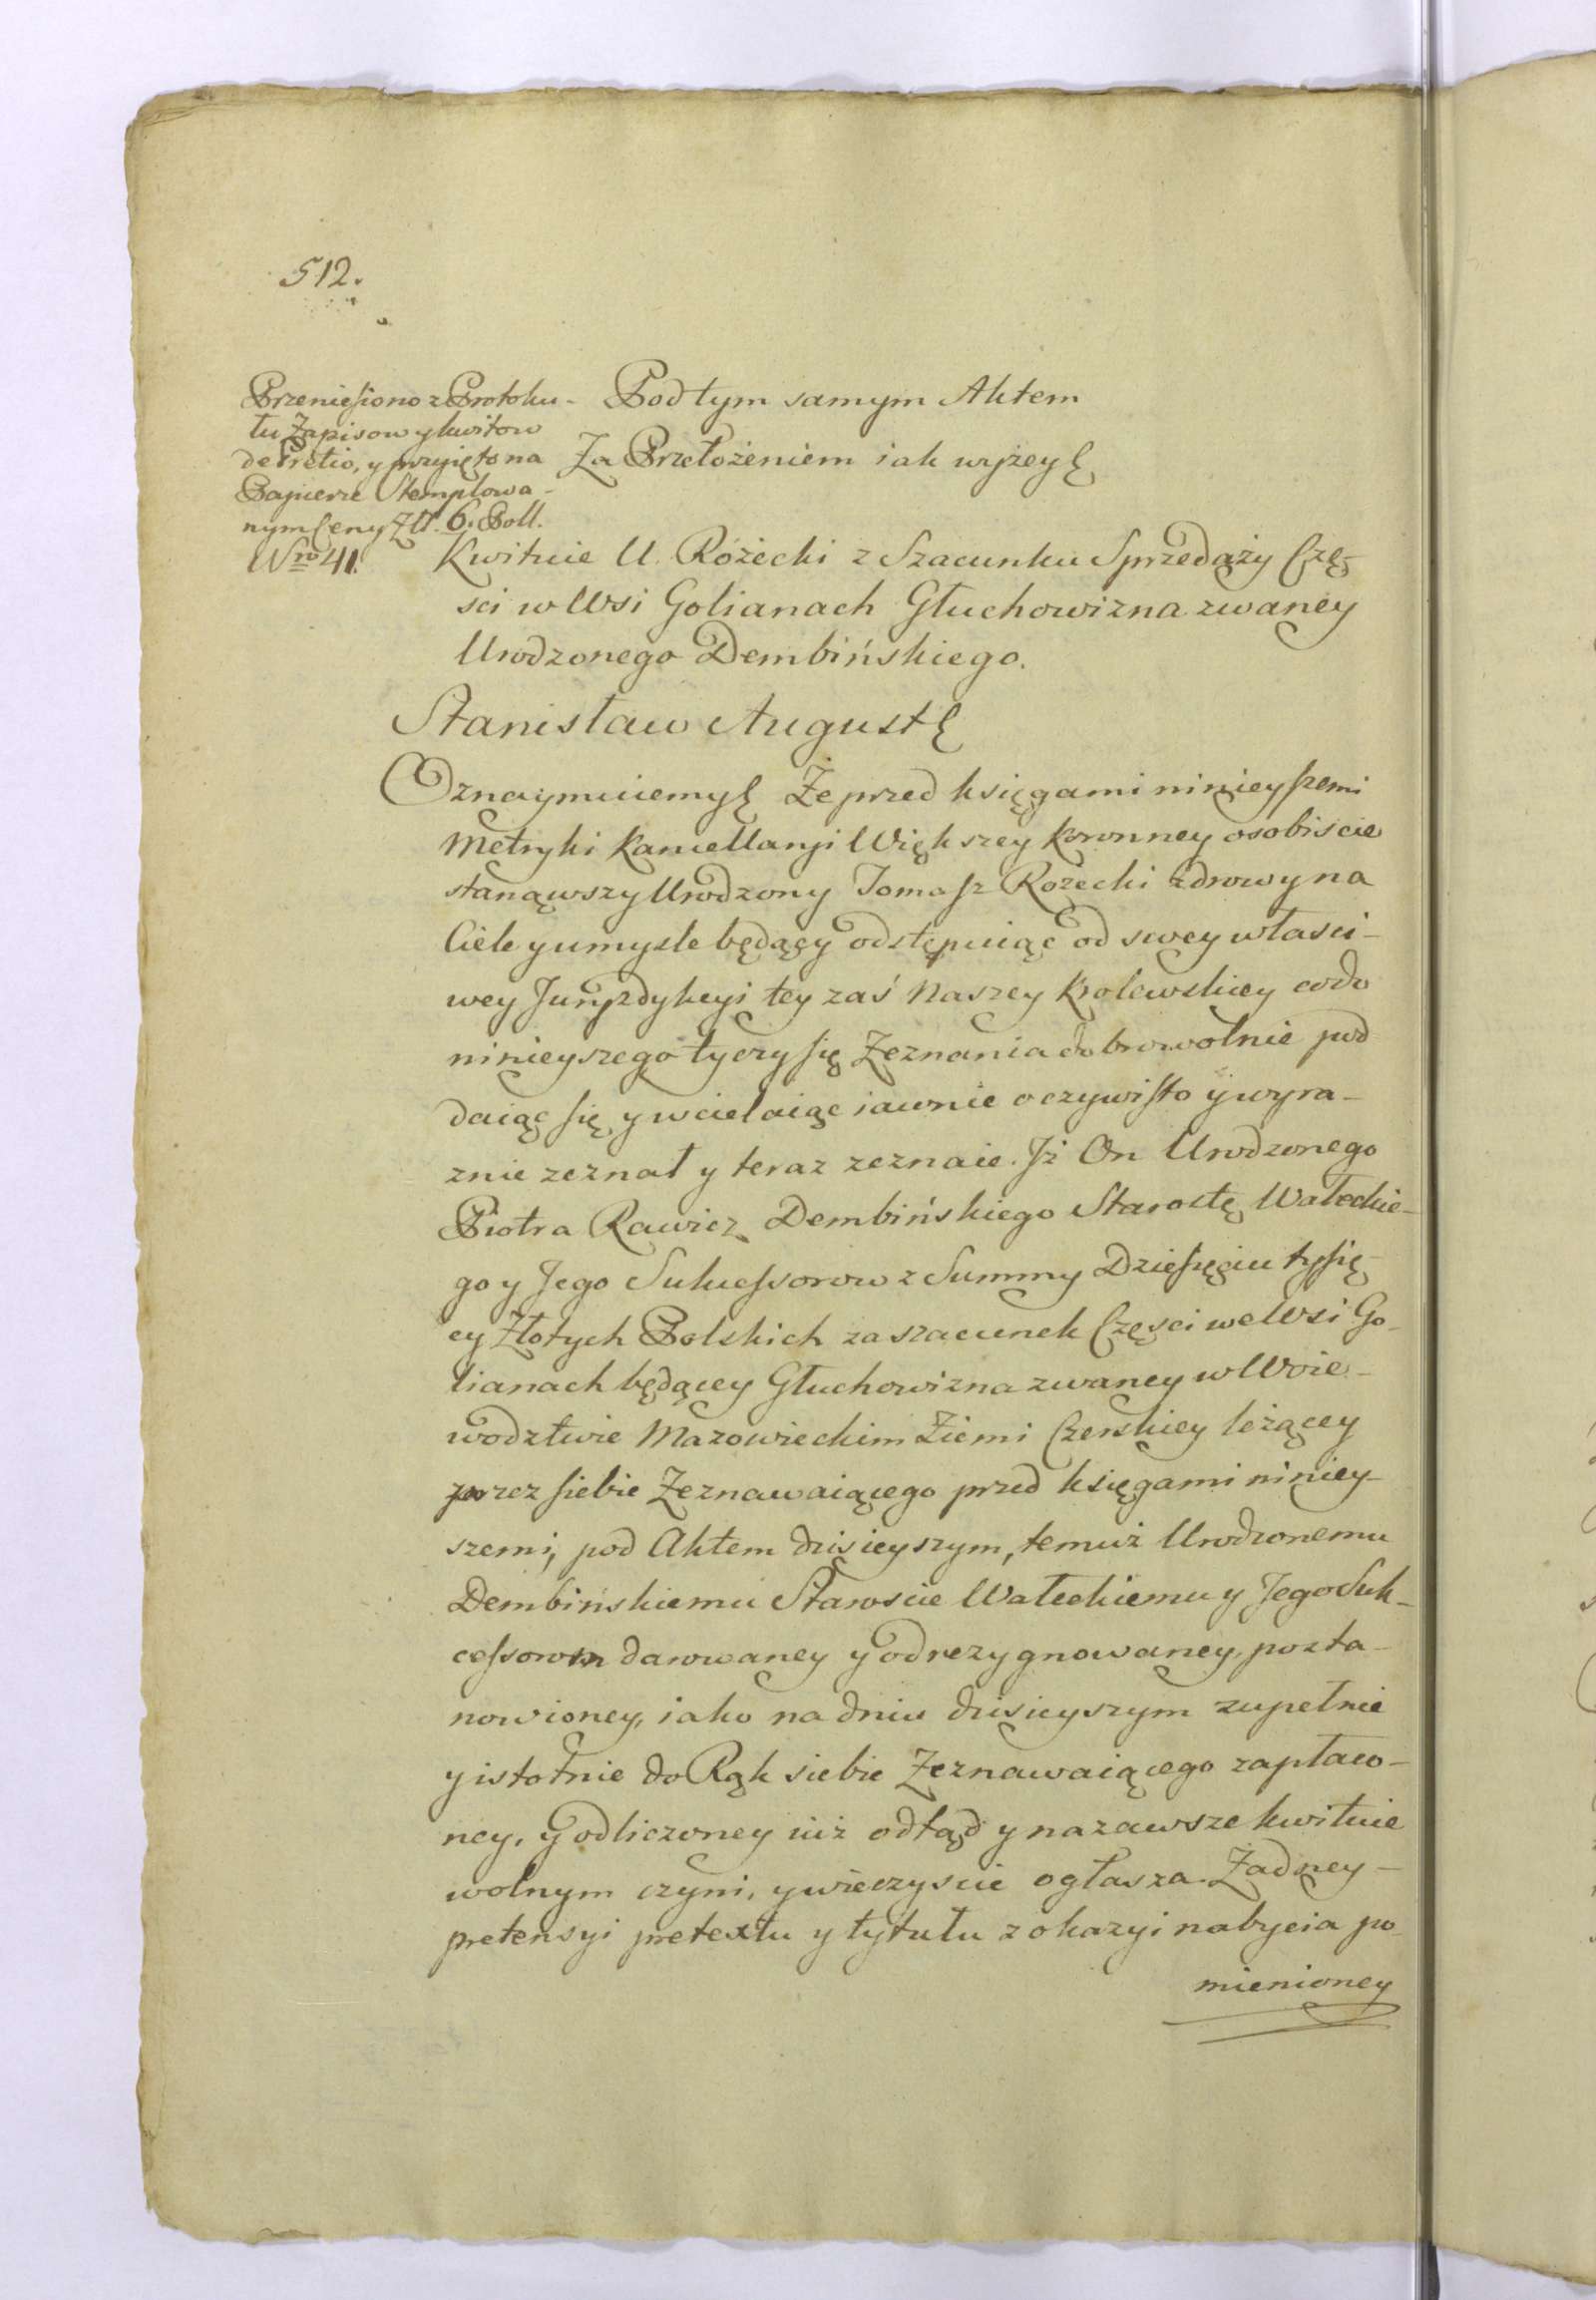 512.
Przeniesiono z Protoku-
łu Zapisow y kwitow
de Pretio, y przyięto na
Papierze Stemplowa-
nym Ceny Złł. 6. Poll.
Nro 41.
Pod tym samym Aktem
Za Przełożeniem iak wyżey
Kwituie U. Rożecki z Szacunku Sprzedaży Czę-
sci w Wsi Golianach Głuchowizna zwaney
Urodzonego Dembińskiego.
Stanisław August
Oznaymuiemy Że przed księgami ninieyszemi
Metryki Kancellaryi Większey Koronney osobiscie
stanąwszy Urodzony Tomasz Rożecki zdrowy na
Ciele y umysle będący odstępuiąc od swey własci-
wey Juryzdykcyi tey zaś Naszey Krolewskiey co do
ninieyszego tyczy się Zeznania dobrowolnie pod
daiąc się y wcielaiąc iawnie oczywisto y wyra-
znie zeznał y teraz zeznaie. Jż On Urodzonego
Piotra Rawicz Dembińskiego Starostę Wałeckie-
go y Jego Sukcessorow z Summy Dziesięciu tysię-
cy Złotych Polskich za szacunek Częsci we Wsi Go-
lianach będącey Głuchowizna zwaney w Woie-
wodztwie Mazowieckim Ziemi Czerskiey leżącey
przez siebie Zeznawaiącego przed księgami niniey-
szemi, pod Aktem dzisieyszym, temuż Urodzonemu
Dembińskiemu Staroscie Wałeckiemu y Jego Suk-
cessorom darowaney y odrezygnowaney, posta-
nowioney, iako na dniu dzisieyszym zupełnie
y istotnie do Rąk siebie Zeznawaiącego zapłaco-
ney, y odliczoney iuż odtąd y na zawsze kwituie
wolnym czyni, y wieczyscie ogłasza. Żadney-
pretensyi pretextu y tytułu z okazyi nabycia po
mienioney